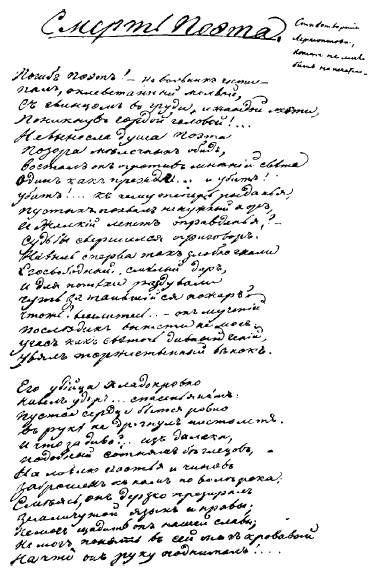 Смерть Поэта.
Стихотворение
Лермонтова,
которое не мо
быть на
Погибъ Поэтъ! — невольникъ чести —
палъ, оклеветанный молвой,
Съ свинцомъ въ груди, и жаждой мести,
Поникнувъ гордой головой!...
Не вынесла душа Поэта
Позора мелочныхъ обидъ,
возсталъ онъ противъ мнѣній свѣта
Одинъ какъ прежде... и убитъ!
убитъ!... къ чему теперь рыданья,
пустыхъ похвалъ ненужный хоръ,
И жалкій лепетъ оправданья, —
Судьбы свершился приговоръ.
Не вы ль сперва такъ злобно гнали
Его свободный, смѣлый даръ,
и для потѣхи раздували
чуть затаившійся пожаръ?
чтожъ? веселитесь.. — онъ мученій
послѣднихъ вынести не могъ,
угасъ какъ свѣточь дивный геній,
увялъ торжественный вѣнокъ.
Его убійца хладнокровно
навелъ ударъ... спасенья нѣтъ:
пустое сердце бьется ровно
Въ рукѣ не дрогнулъ пистолетъ.
И что за диво?.. изъ далека,
подобный сотнямъ бѣглецовъ,
На ловлю счастья и чиновъ
заброшенъ къ намъ по волѣ рока.
Смѣясь, онъ дерзко презиралъ
земли чужой языкъ и нравы;
не могъ щадить онъ нашей славы,
Не могъ понять въ сей мигъ кровавой
На что онъ руку поднималъ!...